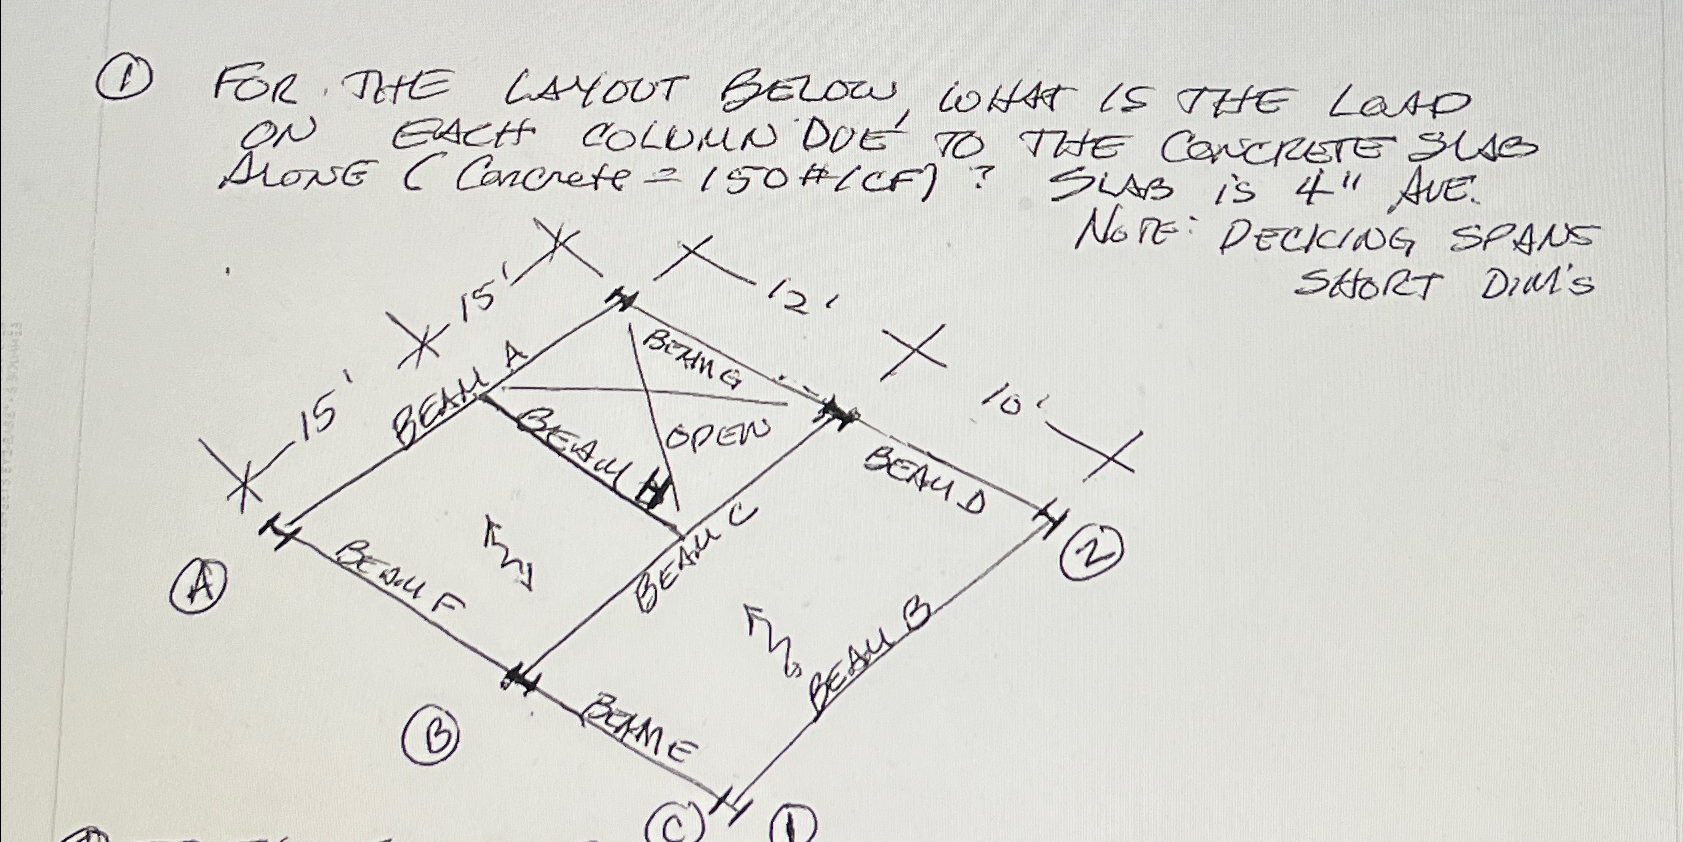 ① FOR THE LAYOUT BELOW, WHAT IS THE LOAD
ON EACH COLUMN DUE TO THE CONCRETE SLAB
ALONE (Concrete = 150#/CF)? SLAB is 4" AVE.
NOTE: DECKING SPANS
SHORT DIM'S
15'
12'
15'
10'
BEAM A
BEAM G
OPEN
BEAM H
BEAM D
BEAM C
2
A
BEAM F
BEAM B
B
BEAM E
C
1